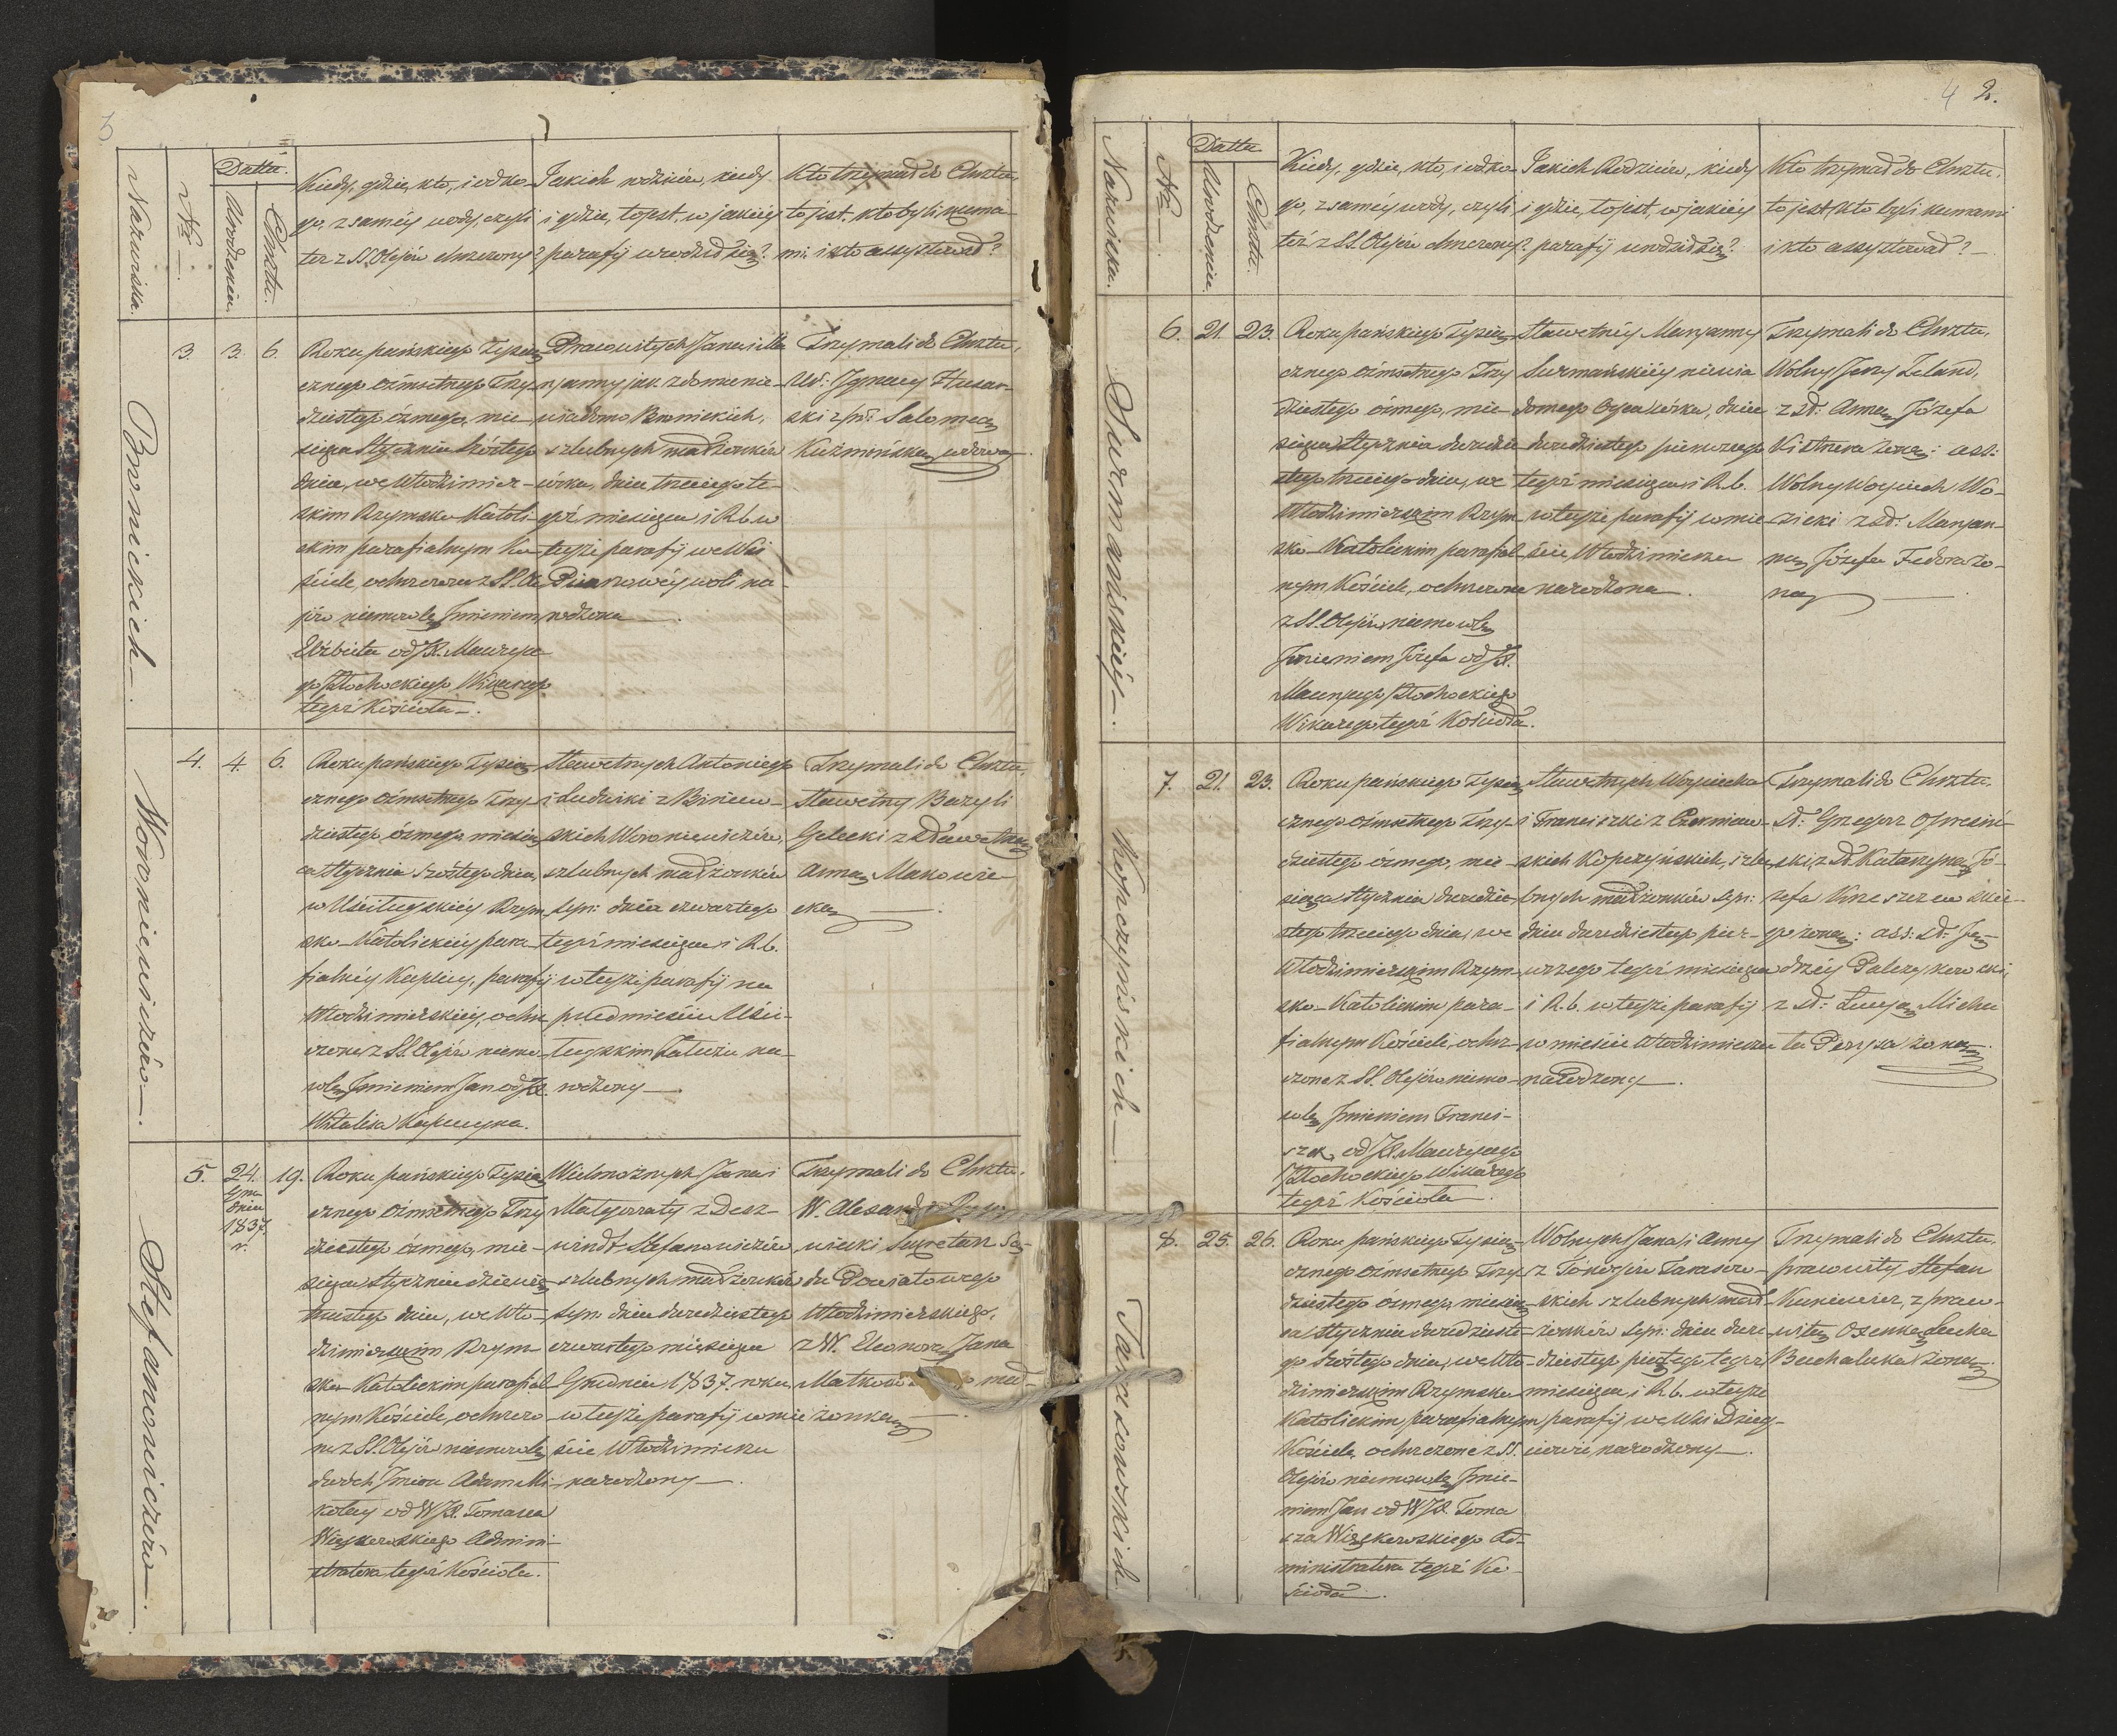 3
Nazwiska.
Nro
Datta.
Urodzenia
Chrztu.
Kiedy, gdzie, kto, i od ko-
go, z saméy wody, czyli
też z SS. Olejów chrzczony?
Jakich rodziców, kiedy
i gdzie, to jest, w jakiéy
parafij urodził się?
Kto trzymał do Chrztu,
to jest, kto byli kuma-
mi, i kto assystował?
Bronickich
3. 3. 6.
Roku pańskiego Tysią-
cznego óśmsetnego Trzy-
dziestego ósmego, mie-
siąca Stycznia szóstego
dnia, we Włodzimier-
skim Rzymsko Katoli-
ckim parafialnym Ko-
ściele, ochrzczone z SS. Ole-
jów niemowlę Imieniem
Elżbieta od JX. Maurycego
go Płochockiego Wikarego
tegoż Kościoła.
Pracowitych Jana i Ma-
ryanny, jak z domu nie-
wiadomo Bronickich,
szlubnych małżonków
córka, dnia trzeciego te-
goż miesiąca, i R. b. w
tejże parafij we Wsi
Pianowéy woli na-
rodzona.
Trzymali do Chrztu,
Ur: Ignacy Husar-
ski z Salomeą
Kuźmińską wdową.
Woroniewiczów
4. 4. 6.
Roku pańskiego Tysią-
cznego óśmsetnego Trzy-
dziestego ósmego miesią-
ca Stycznia szóstego dnia,
w Uściługskiéy Rzym-
sko-Katolickiéy para-
fialnéy Kaplicy, parafij
Włodzimierskiéy, ochrz-
czone z SS. Olejów niemo-
wlę Imieniem Jan od JX.
Witalisa Kapucyna.
Sławetnych Antoniego
i Ludwiki z Biniew-
skich Woroniewiczów,
szlubnych małżonków
syn: dnia czwartego
tegoż miesiąca i R. b.
w tejże parafij na
przedmieściu Uści-
ługskim Załuziu na-
rodzony.
Trzymali do Chrztu,
Sławetny Bazyli
Galecki z Sławetną
Anną Makowie-
cką
Stefanowiczów
5. 24. Gru-
dnia
1837.
r.
19.
Roku pańskiego Tysią-
cznego óśmsetnego Trzy-
dziestego ósmego, mie-
siąca Stycznia dziewię-
tnastego dnia, we Wło-
dzimierskim Rzym-
sko Katolickim parafial-
nym Kościele, ochrzczo-
ne z SS. Olejów niemowlę
dwóch Imion Adam Mi-
kołay od WJX. Tomasza
Więckowskiego Admini-
stratora tegoż Kościoła.
Wielmożnych Jana i
Małgorzaty z Desz-
windt Stefanowiczów
szlubnych małżonków
syn: dnia dwudziestego
czwartego miesiąca
Grudnia 1837. roku
w tejże parafij w mie-
ście Włodzimierzu
narodzony.
Trzymali do Chrztu.
W. Alexand
wiecki Sekretarz Są-
du Powiatowego
Włodzimierskiego,
z W. Eleonorą Jana
Matkow mał-
żonką
4 2.
Nazwiska.
Nro
Datta.
Urodzenia.
Chrztu.
Kiedy, gdzie, kto, i od ko-
go, z saméy wody, czyli
też z SS. Olejów chrzczony?
Jakich Rodziców, kiedy
i gdzie, to jest, w jakiéy
parafij urodził się?
Kto trzymał do Chrztu.
to jest, kto byli kumami
i kto assystował?
Surmańskiéy
6. 21. 23.
Roku pańskiego Tysią-
cznego óśmsetnego Trzy-
dziestego ósmego, mie-
siąca Stycznia dwudzie-
stego trzeciego dnia, we
Włodzimierskim Rzym-
sko-Katolickim parafial-
nym Kościele, ochrzczone
z SS. Olejów niemowlę
Imieniem Józefa od JX.
Maurycego Płochockiego
Wikarego tegoż Kościoła.
Sławetnéy Maryanny
Surmańskiéy niewia-
domego Ojca córka, dnia
dwudziestego pierwszego
tegoż miesiąca i R. b.
w tejże parafij w mie-
ście Włodzimierzu
narodzona.
Trzymali do Chrztu,
Wolny Jerzy Zeland,
z Sł: Anną Józefa
Kistnera żoną: ass:
Wolny Woyciech Wo-
zicki z Sł: Maryan-
ną Józefa Fedora żo-
ną
Kopczyńskich
7. 21. 23.
Roku pańskiego Tysią-
cznego óśmsetnego Trzy-
dziestego ósmego, mie-
siąca Stycznia dwudzie-
stego trzeciego dnia, we
Włodzimierskim Rzym-
sko-Katolickim para-
fialnym Kościele, ochrz-
czone z SS. Olejów niemo-
wlę Imieniem Franci-
szek, od JX. Maurycego
Płochockiego Wikarego
tegoż Kościoła.
Sławetnych Woyciecha
i Franciszki z Czerniew-
skich Kopczyńskich, szlu-
bnych małżonków syn:
dnia dwudziestego pier-
wszego tegoż miesiąca
i R. b. w tejże parafij
w mieście Włodzimierzu
narodzony.
Trzymali do Chrztu.
Sł: Grzegorz
ski, z Sł. Katarzyną Jó-
zefa Krzeszczewskie-
go żoną: ass: Sł: Ję-
drzéy Palczykowski,
z Sł: Łucyą Micha-
ła żoną.
Tarasowskich
8. 25. 26.
Roku pańskiego Tysią-
cznego óśmsetnego Trzy-
dziestego ósmego, miesią-
ca Stycznia dwudzieste-
go szóstego dnia, we Wło-
dzimierskim Rzymsko
Katolickim parafialnym
Kościele, ochrzczone z SS.
Olejów niemowlę Imie-
niem Jan od WJX. Toma-
sza Więckowskiego Ad-
ministratora tegoż Ko-
ścioła.
Wolnych Jana i Anny
z Tarasow-
skich szlubnych mał-
żonków syn: dnia dwu-
dziestego piątego tegoż
miesiąca, i R. b. w tejże
parafij we Wsi Dzieg-
ciowie, narodzony.
Trzymali do Chrztu.
pracowity Stefan
Kuniewicz, z praco-
witą Oxenką Łucka
Buchaluka żoną.